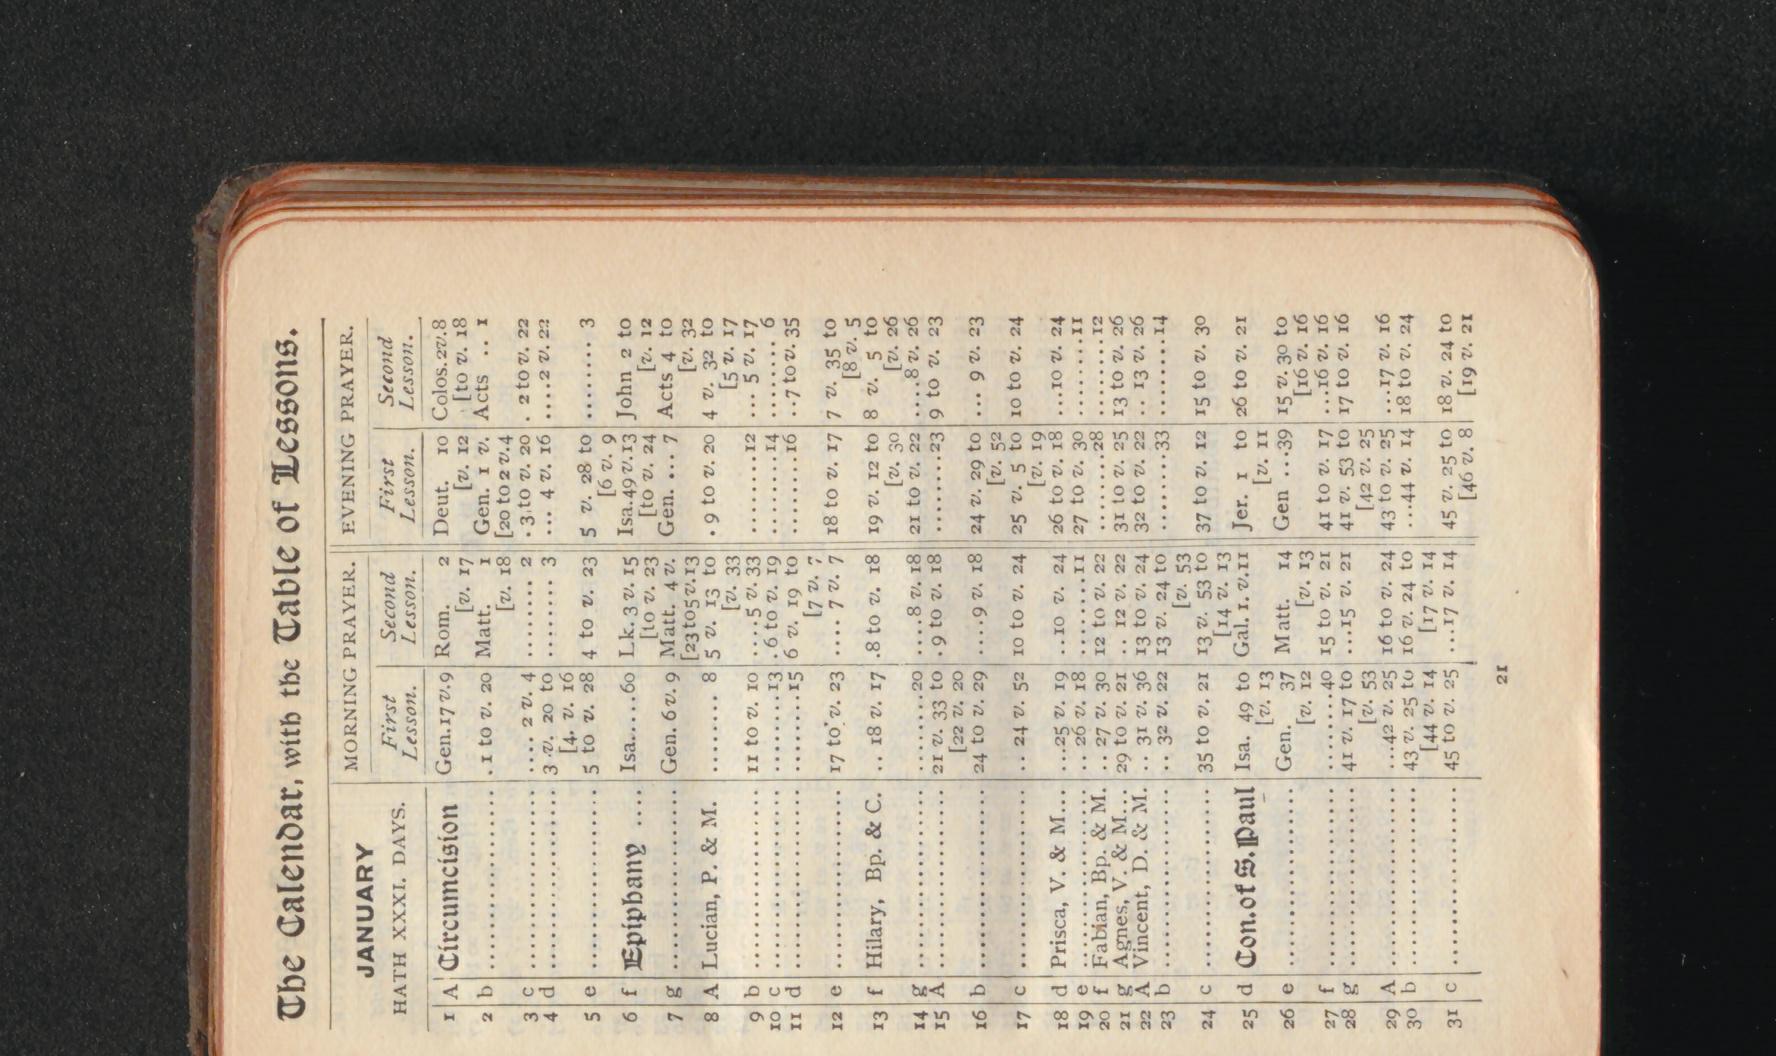 The Calendar, with the Table of Lessons.
JANUARY HATH XXXI. DAYS. MORNING PRAYER. EVENING PRAYER.
First Lesson. Second Lesson. First Lesson. Second Lesson.
1 A Circumcision Gen. 17 v. 9 Rom. 2 Deut. 10 Colos. 2 v. 8
[v. 17 [v. 12 [to v. 18
2 b .................... . 1 to v. 20 Matt. 1 Gen. 1 v. Acts .. 1
[v. 18 [20 to 2 v. 4
3 c .................... .... 2 v. 4 ......... 2 . 3 to v. 20 . 2 to v. 22
4 d .................... 3 v. 20 to ......... 3 ... 4 v. 16 ....2 v. 22
[4. v. 16
5 e .................... 5 to v. 28 4 to v. 23 5 v. 28 to ........ 3
[6 v. 9
6 f Epiphany ..... Isa.....60 Lk. 3 v. 15 Isa. 49 v. 13 John 2 to
[to v. 23 [to v. 24 [v. 12
7 g .................... Gen. 6 v. 9 Matt. 4 v. Gen. ... 7 Acts 4 to
[23 to 5 v. 13 [v. 32
8 A Lucian, P. & M. ......... 8 5 v. 13 to . 9 to v. 20 4 v. 32 to
[v. 33 [5 v. 17
9 b .................... 11 to v. 10 ....5 v. 33 .........12 ... 5 v. 17
10 c .................... .........13 . 6 to v. 19 .........14 ........ 6
11 d .................... .........15 6 v. 19 to .........16 ..7 to v. 35
[7 v. 7
12 e .................... 17 to v. 23 .... 7 v. 7 18 to v. 17 7 v. 35 to
[8 v. 5
13 f Hilary, Bp. & C. .. 18 v. 17 .8 to v. 18 19 v. 12 to 8 v. 5 to
[v. 30 [v. 26
14 g .................... ........20 ....8 v. 18 21 to v. 22 ....8 v. 26
15 A .................... 21 v. 33 to . 9 to v. 18 .........23 9 to v. 23
[22 v. 20
16 b .................... 24 to v. 29 ....9 v. 18 24 v. 29 to ... 9 v. 23
[v. 52
17 c .................... .. 24 v. 52 10 to v. 24 25 v. 5 to 10 to v. 24
[v. 19
18 d Prisca, V. & M... ...25 v. 19 ..10 v. 24 26 to v. 18 ...10 v. 24
19 e .................... .. 26 v. 18 ........11 27 to v. 30 .........11
20 f Fabian, Bp. & M. .. 27 v. 30 12 to v. 22 .........28 .........12
21 g Agnes, V. & M... 29 to v. 21 .. 12 v. 22 31 to v. 25 13 to v. 26
22 A Vincent, D. & M. .. 31 v. 36 13 to v. 24 32 to v. 22 .. 13 v. 26
23 b .................... .. 32 v. 22 13 v. 24 to .........33 .........14
[v. 53
24 c .................... 35 to v. 21 13 v. 53 to 37 to v. 12 15 to v. 30
[14 v. 13
25 d Con. of S. Paul Isa. 49 to Gal. 1. v. 11 Jer. 1 to 26 to v. 21
[v. 13 [v. 11
26 e .................... Gen. 37 Matt. 14 Gen ...39 15 v. 30 to
[v. 12 [v. 13 [16 v. 16
27 f .................... .........40 15 to v. 21 41 to v. 17 ...16 v. 16
28 g .................... 41 v. 17 to ...15 v. 21 41 v. 53 to 17 to v. 16
[v. 53 [42 v. 25
29 A .................... ...42 v. 25 16 to v. 24 43 to v. 25 ...17 v. 16
30 b .................... 43 v. 25 to 16 v. 24 to ...44 v. 14 18 to v. 24
[44 v. 14 [17 v. 14
31 c .................... 45 to v. 25 ...17 v. 14 45 v. 25 to 18 v. 24 to
[46 v. 8 [19 v. 21
21